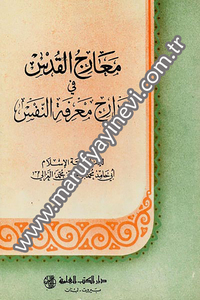 معارج القدس
في
مدارج معرفة النفس
الإسلام
أبي حامد محمد
دار الكتب العلمية
بيروت - لبنان
www.marufyayinevi.com.tr